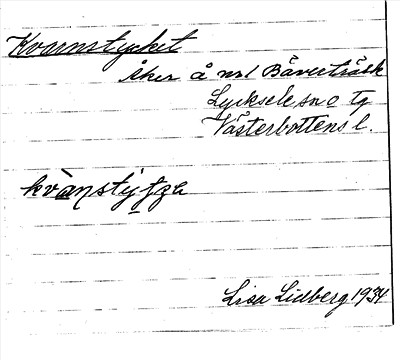 Kvarnstycket
Åker å nr 1 Bäverträsk
Lycksele sn o tg
Västerbottens l.
Lisa Lidberg 1934